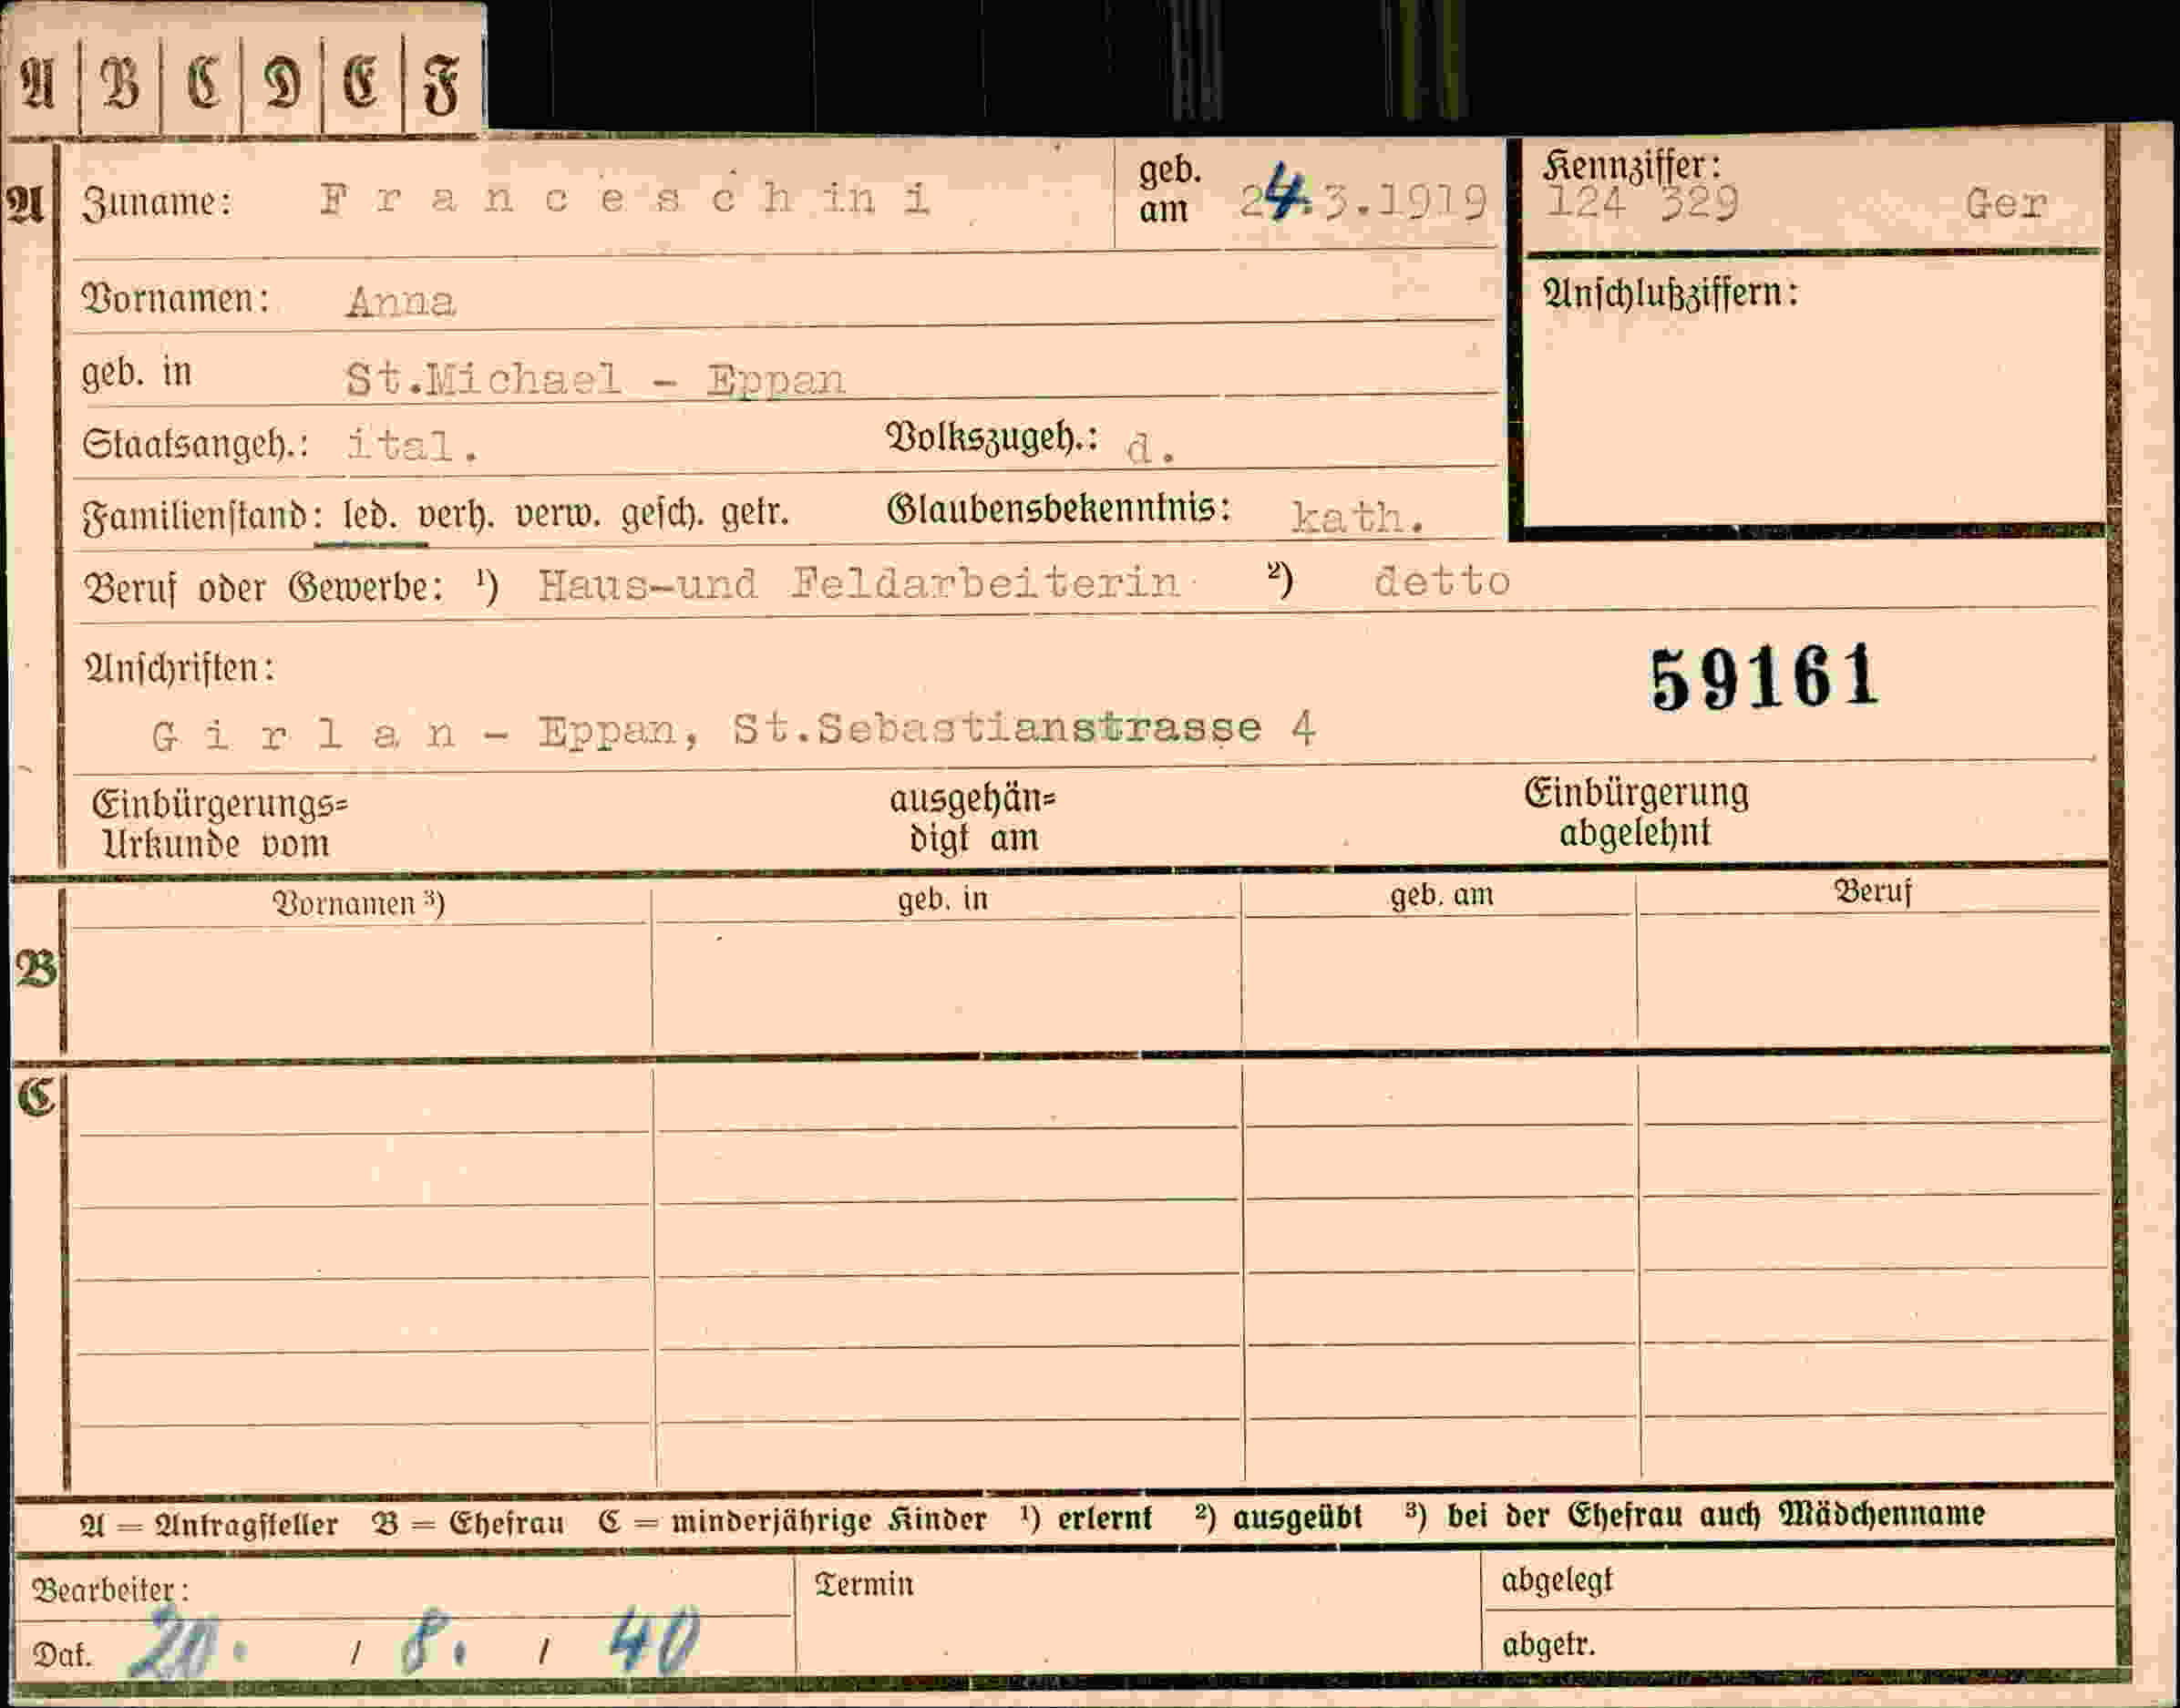 A B C D E F
A Zuname: Franceschini geb. am 24.3.1919 Kennziffer: 124 329 Ger
Vornamen: Anna Anschlußziffern:
geb. in St.Michael - Eppan
Staatsangeh.: ital. Volkszugeh.: d.
Familienstand: led. verh. verw. gesch. getr. Glaubensbekenntnis: kath.
Beruf oder Gewerbe: ¹) Haus-und Feldarbeiterin ²) detto
Anschriften: 59161
Girlan - Eppan, St.Sebastianstrasse 4
Einbürgerungs= ausgehän= Einbürgerung
Urkunde vom digt am abgelehnt
Vornamen ³) geb. in geb. am Beruf
B
C
A = Antragsteller B = Ehefrau C = minderjährige Kinder ¹) erlernt ²) ausgeübt ³) bei der Ehefrau auch Mädchenname
Bearbeiter: Termin abgelegt
Dat. 20. / 8. / 40 abgetr.